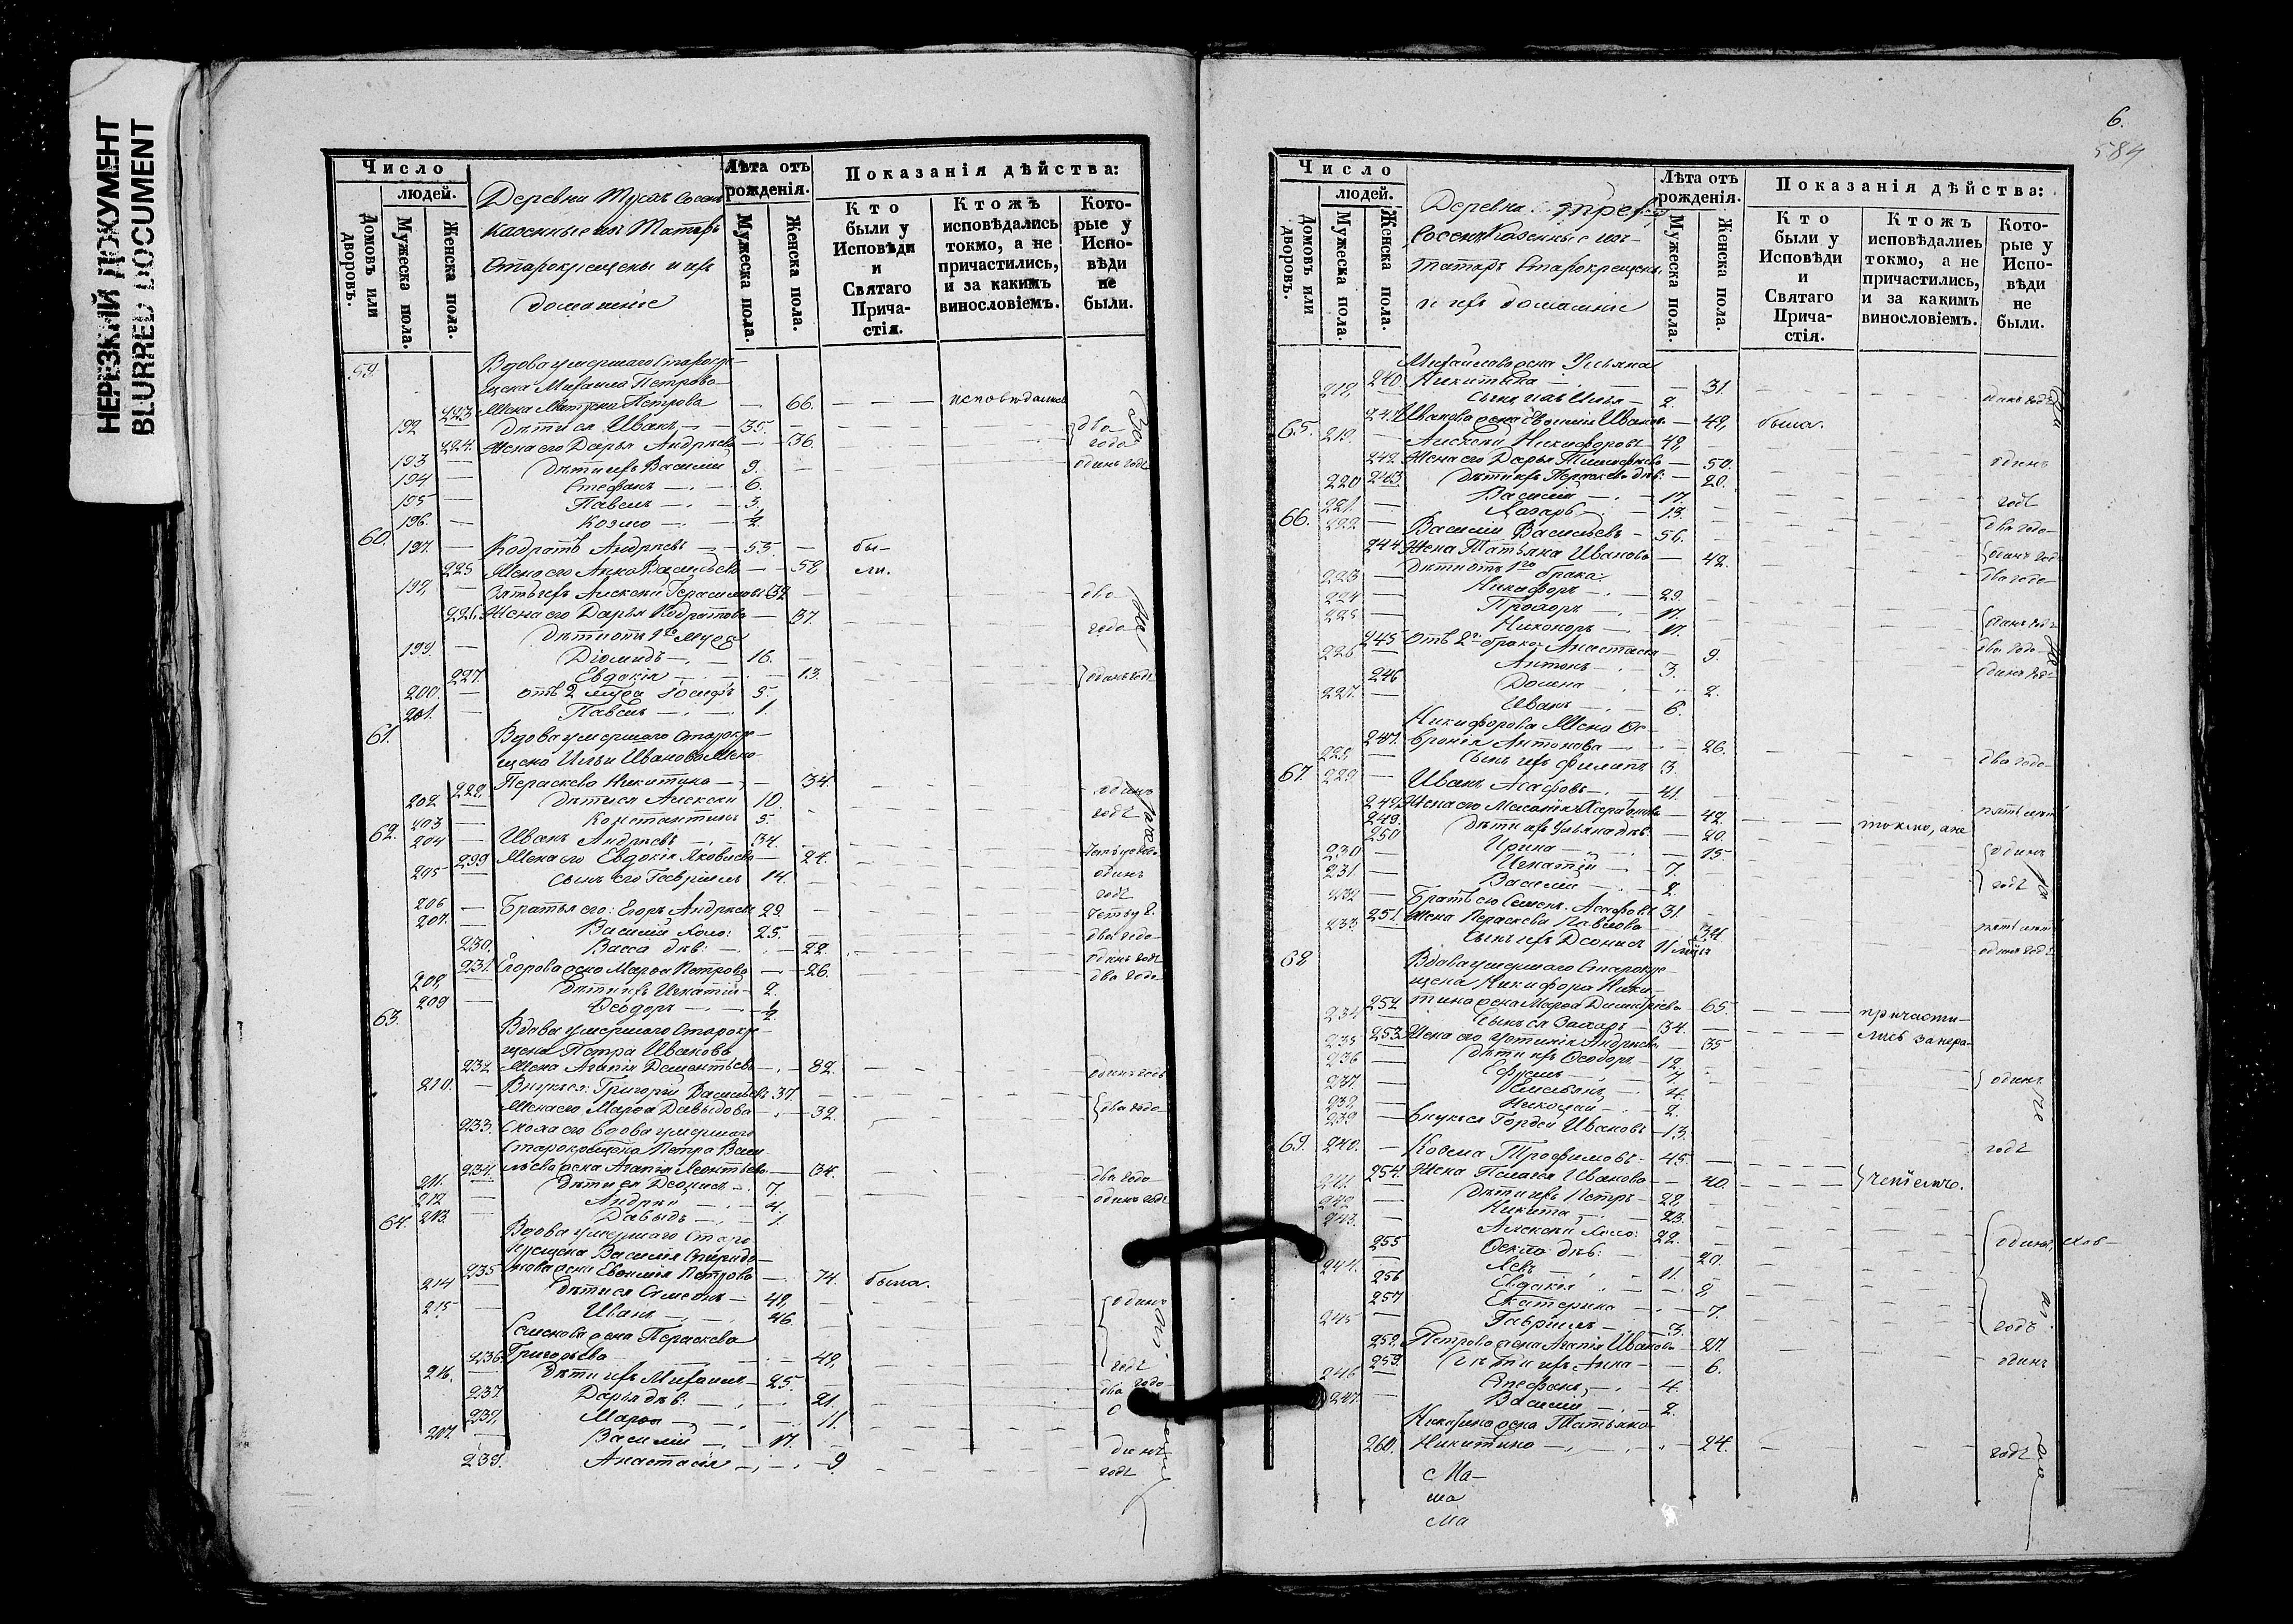 НЕРЕЗКИЙ ДОКУМЕНТ
BLURRED DOCUMENT
Число
людей.
Домовъ или дворовъ.
Мужеска пола.
Женска пола.
Деревни
казенные изъ Татаръ
Старокрещены и ихъ
домашніе
Лѣта отъ рожденія.
Мужеска пола.
Женска пола.
Показанія дѣйства:
Кто были у Исповѣди и Святаго Прича-стія.
Ктожъ исповѣдались токмо, а не причастились, и за какимъ винословіемъ.
Кото-рые у Испо-вѣди не были.
59. Вдова умершаго Старокре-
щена Михаила Петрова
223 Жена Петрова — 66. исповѣдались
192 Дѣти ея Иванъ 35. два
224. Жена его Дарья Андреева 36. года
193 Дѣти ихъ Василій 9. одинъ годъ
194 Стефанъ 6.
195 Павелъ 3.
196. Козма ½
60. 197. Кодратъ Андреевъ 55. бы-
225 Жена его Анна Васильева 58 ли.
198 Зять ихъ Алексей Герасимовъ 38 два
226. Жена его Дарья Кодратова 37. года
Дѣти отъ 1го мужа
199. Діомидъ 16.
227. Евдокія 13. одинъ годъ
200. отъ 2 мужа Іосифъ 5.
201. Павелъ 1.
61. Вдова умершаго Старокре-
щена Ильи Иванова Жена
228. Параскева Никитина 34. одинъ
202 Дѣти ея Алексей 10. годъ
203 Константинъ 5.
62. 204 Иванъ Андреевъ 34.
229 Жена его Евдокія Яковлева 24.
205 Сынъ его Гавріилъ 14. одинъ
годъ
206 Братья его: Егоръ Андреевъ 29.
207. Василій холо: 25. два года
230. Васса дѣв: 22. одинъ годъ
231. Егорова жена Марѳа Петрова 26. два года
208. Дѣти ихъ Игнатій 2.
209 Ѳеодоръ ½
63. Вдова умершаго Старокре-
щена Петра Иванова
232. Жена Агапія Дементьева 82. одинъ годъ
210. Внукъ ея: Григорій Васильевъ 37.
Жена его Марѳа Давыдова 32. два года
233. Сноха его вдова умершаго
Старокрещена Петра Васи-
234. льева жена Агапія Леонтьева 34. два года
211. Дѣти ея Деонисъ 7. одинъ годъ
212 Андрей 4.
213. Давыдъ 1.
64. Вдова умершаго Старо-
крещена Василія Спиридо-
235 нова жена Евѳимія Петрова 74. была.
214 Дѣти ея Симеонъ 48. одинъ
215 Иванъ 46.
Семенова жена Параскева
236. Григорьева 48. годъ
216. Дѣти ихъ Михаилъ 25. два года
237. Дарья дѣв: 21.
238. Марѳа 11.
217. Василій 17. динъ
239. Анастасія 9. годъ
6.
584
Число
людей.
Домовъ или дворовъ.
Мужеска пола.
Женска пола.
Деревни
Казенные изъ
Татаръ Старокрещены
и ихъ домашніе
Лѣта отъ рожденія.
Мужеска пола.
Женска пола.
Показанія дѣйства:
Кто были у Исповѣди и Святаго Прича-стія.
Ктожъ исповѣдались токмо, а не причастились, и за какимъ винословіемъ.
Кото-рые у Испо-вѣди не были.
Михайлова жена Ульяна
240. Никитина 31.
218. Сынъ ихъ Илья 2. одинъ годъ
241. Иванова жена Евѳимія Иванова 49, была.
65. 219. Алексей Никифоровъ 48,
242 Жена его Дарья Тимофеева 50. одинъ
243 Дѣти ихъ Параскева дѣв: 20.
220 Василій 17. годъ
221. Лазарь 13.
66. 222. Василій Васильевъ 56. два года
244 Жена Татьяна Иванова 42. одинъ годъ
Дѣти отъ 1го брака: два года
223 Никифоръ 29.
224 Прохоръ 17.
225 Никоноръ 11. одинъ годъ
245 Отъ 2го брака Анастасія 9. два года
226 Антонъ 3. одинъ годъ
246 Домна 2.
227. Иванъ 6.
Никифорова Жена Ѳе-
247. вронія Антонова 26.
228 Сынъ ихъ Филипъ 3. два года
67. 229. Иванъ Асафовъ 41.
248. Жена его 42. пять лѣтъ
249. Дѣти ихъ Ульяна дѣв: 20. токмо, а не
250 Ирина 15. одинъ
230 Игнатій 7.
231 Василій 2. годъ
232 Братъ его Семенъ Асафовъ 31.
251. Жена Параскева Павлова 34 пять лѣтъ
233 Сынъ ихъ Деонисъ одинъ годъ
68 Вдова умершаго Старокре-
щена Никифора Ники-
252. тина жена Марѳа Димитріева 65. причасти-
234 Сынъ ея Захаръ 34.
253 Жена его Андреева 35 лись за нера-
235 Дѣти ихъ Ѳеодоръ 12.
236 Ефремъ 7. одинъ
237. Емельянъ 4.
238 Николай 2.
239 Внукъ ея Гордей Ивановъ 13.
69. 240. Козма Трофимовъ 45. годъ
254. Жена Пелагея Иванова 40. ченіемъ.
241. Дѣти ихъ Петръ 28.
242 Никита 23.
243. Алексей холо: 22.
255 Ѳекла дѣв: 20. одинъ
244. Левъ 11.
256 Евдокія 8
257 Екатерина 7.
245 Гавріилъ 3. годъ
258. Петрова жена Агапія Иванова 27.
259. Дѣти ихъ Анна 6. одинъ
246 Стефанъ 4.
247. Василій 2.
Никитина жена Татьяна
260. Никитина 24. годъ